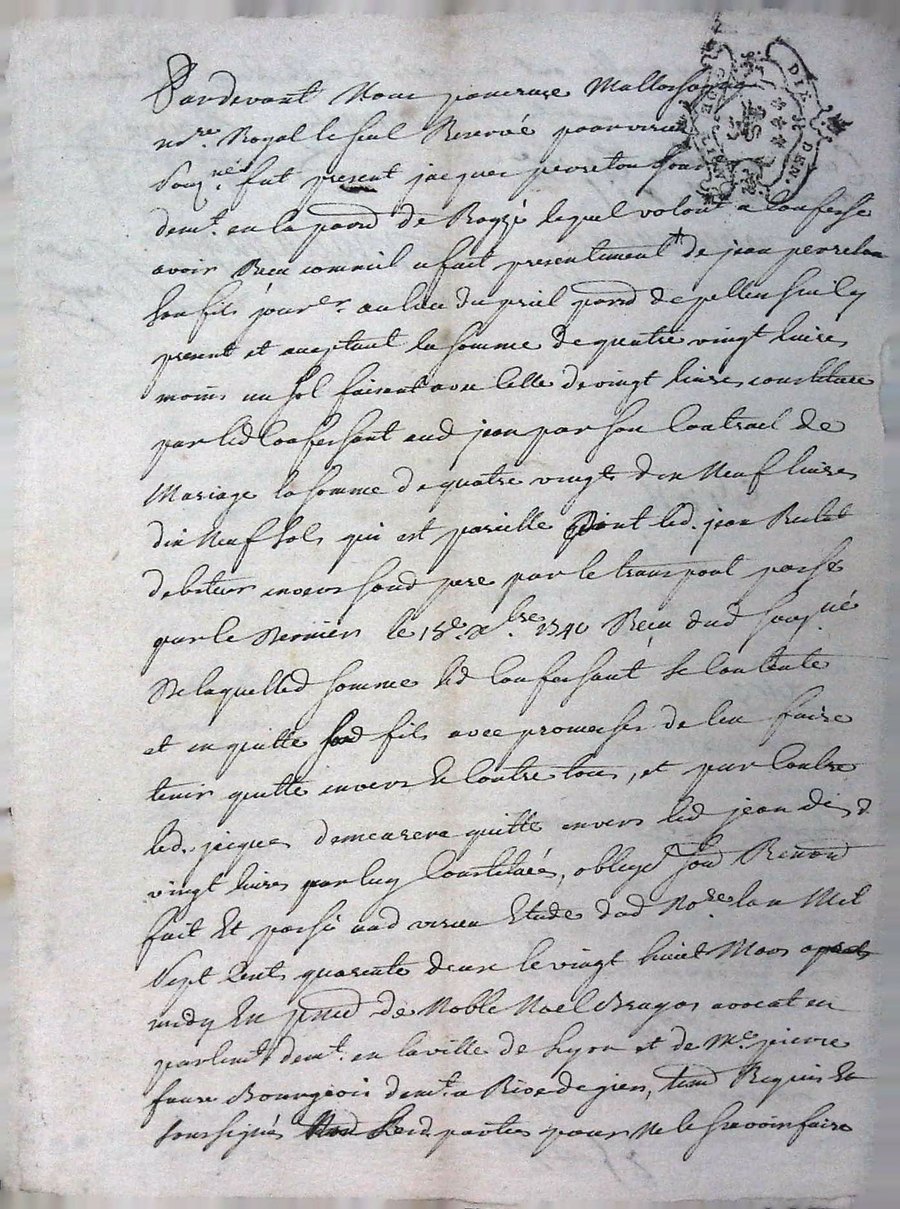 Pardevant Nous
nore. Royal le seul Reservé pour virieu
Sousné. fut present jacques perreton
demt. en la parr de lequel volont. a Confessé
avoir Receu comme il a fait presentiment de jean perreton
son fils jour. au lieu du parr de pellussin Icy
present et aceptant la somme de quatre vingt livres
moins un sol faisant avec Celle de vingt livres constituée
par led Confessant aud jean par son Contract de
Mariage la somme de quatre vingt dix Neuf livres
dix Neuf sols qui est pareille dont led. jean
debiteur envers sond pere par le transport passé
par le dernier le 18e. xbre 1740 Receu dud sousné
De laquelled somme led Confessant se Contente
et en quitte sond fils avec promesses de len faire
tenir quitte envers Et Contre tous, et par Contre
led. jacques demeurera quitte envers led jean desd
vingt livres par luy Constituées, oblige
fait Et passé aud virieu Etude dud Nore. lan Mil
Sept Cents quarente deux le vingt huit Mars apres
midy En pnce de Noble Noel avocat en
parlemt. demt. en la ville de Lyon et de Me. pierre
faure Bourgeois demt. a Rivedegier, Requis Et
soussignés Lesd. parties pour Ne le scavoir faire